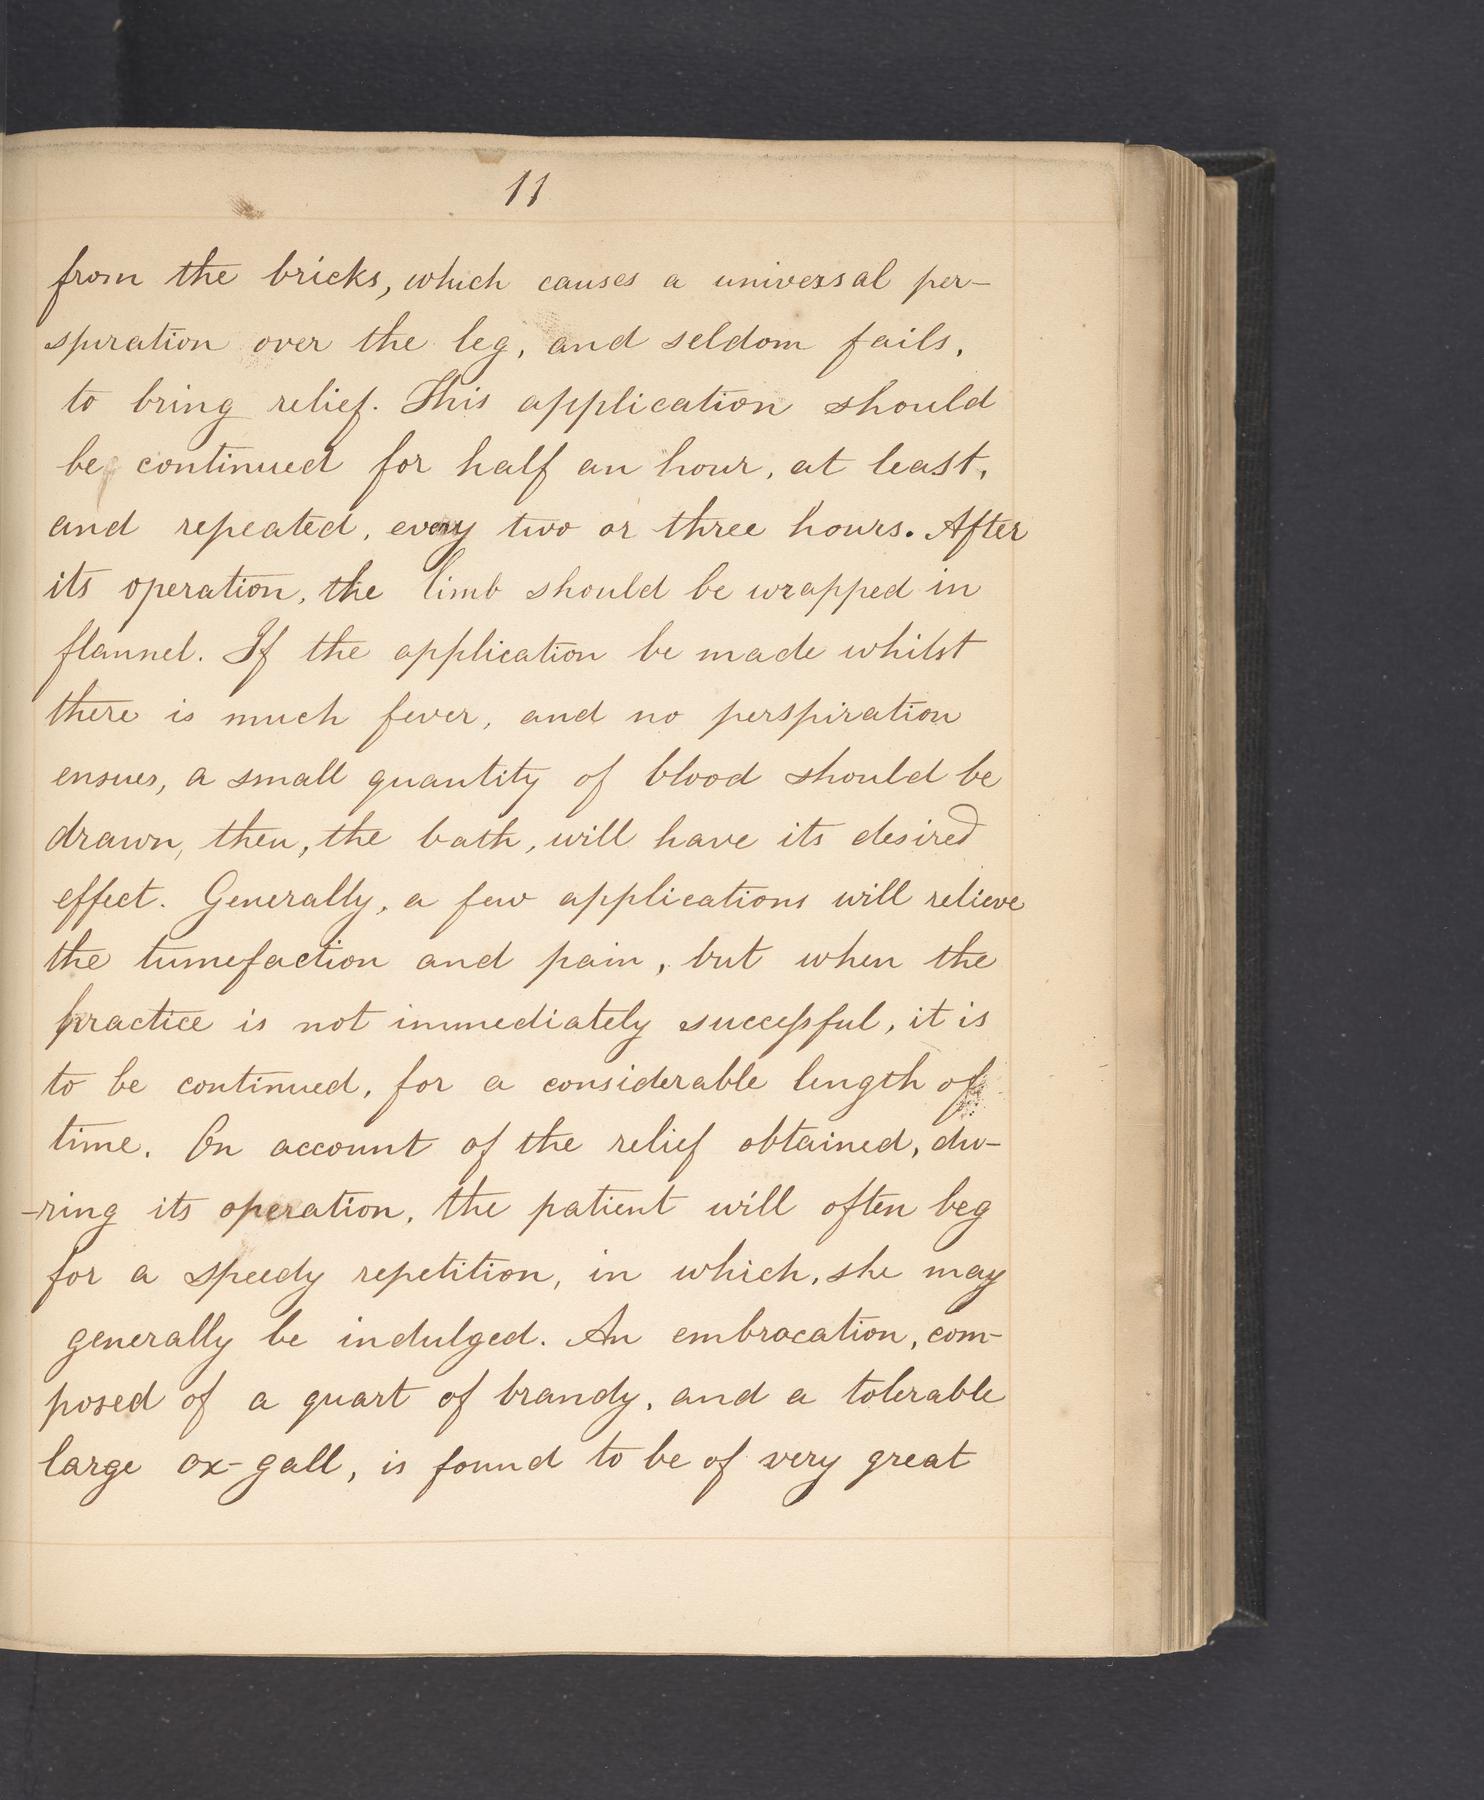 11
from the bricks, which causes a universal per-
spiration over the leg, and seldom fails,
to bring relief. This application should
be continued for half an hour, at least,
and repeated, every two or three hours. After
its operation, the limb should be wrapped in
flannel. If the application be made whilst
there is much fever, and no perspiration
ensues, a small quantity of blood should be
drawn, then, the bath, will have its desired
effect. Generally, a few applications will relieve
the tumefaction and pain, but when the
practice is not immediately successful, it is
to be continued, for a considerable length of
time. On account of the relief obtained, du-
-ring its operation, the patient will often beg
for a speedy repetition, in which, she may
generally be indulged. An embrocation, com-
posed of a quart of brandy, and a tolerable
large ox-gall, is found to be of very great